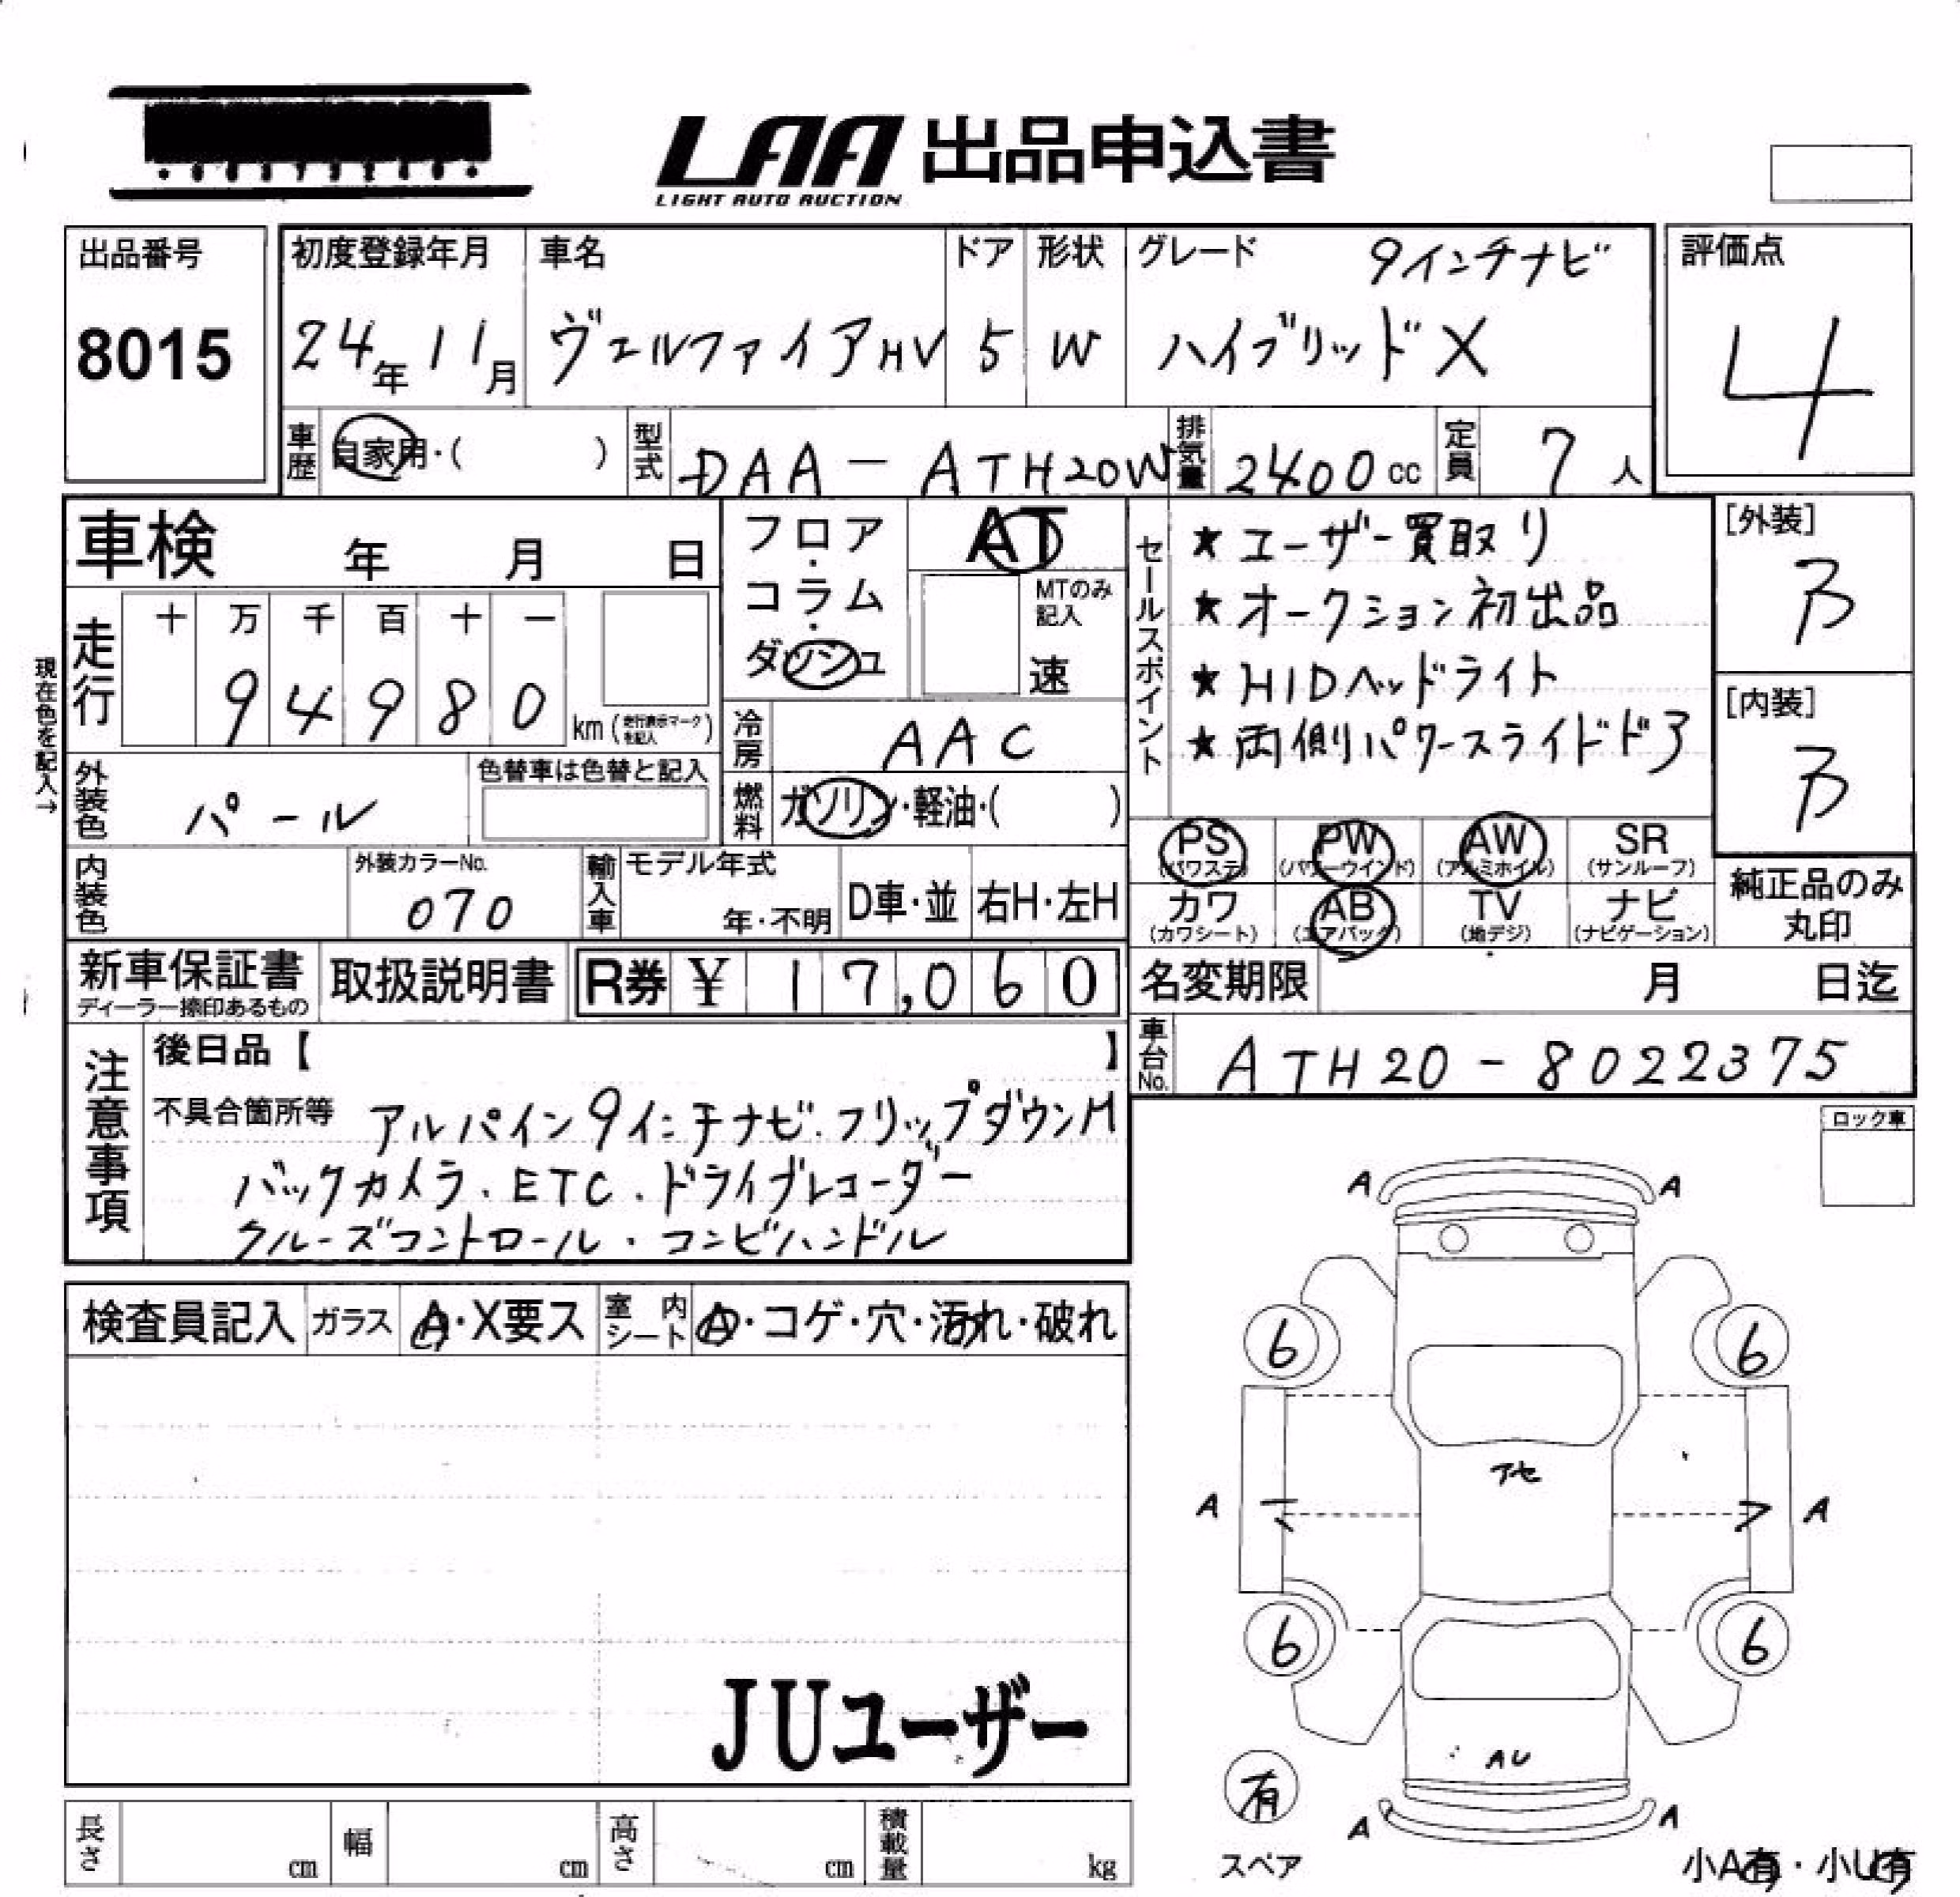 LAA 出品申込書
LIGHT AUTO AUCTION
出品番号
8015
初度登録年月
24年11月
車名
ヴェルファイアHV
ドア
5
形状
W
グレード 9インチナビ
ハイブリッドX
評価点
4
車歴 自家用・( )
型式 DAA-ATH20W
排気量 2400cc
定員 7人
車検 年 月 日
走行
十 万 千 百 十 一
94980 km (走行表示マークを記入)
現在色を記入→
外装色 パール
色替車は色替と記入
内装色
外装カラーNo.
070
輸入車
モデル年式
年・不明
D車・並
右H・左H
フロア・コラム・ダッシュ
AT
MTのみ記入
速
冷房 AAC
燃料 ガソリン・軽油・( )
セールスポイント
★ユーザー買取り
★オークション初出品
★HIDヘッドライト
★両側パワースライドドア
PS (パワステ)
PW (パワーウインド)
AW (アルミホイル)
SR (サンルーフ)
カワ (カワシート)
AB (エアバック)
TV (地デジ)
ナビ (ナビゲーション)
[外装]
B
[内装]
B
純正品のみ
丸印
新車保証書
ディーラー捺印あるもの
取扱説明書
R券 ¥ 17,060
名変期限 月 日迄
車台No. ATH20-8022375
注意事項
後日品【 】
不具合箇所等 アルパイン9インチナビ.フリップダウンM
バックカメラ.ETC.ドライブレコーダー
クルーズコントロール・コンビハンドル
ロック車
検査員記入
ガラス A・X要ス
室内シート A・コゲ・穴・汚れ・破れ
JUユーザー
A A
6 6
アセ
A A
6 6
AU
有
スペア
A A
小A有・小U有
長さ cm
幅 cm
高さ cm
積載量 kg